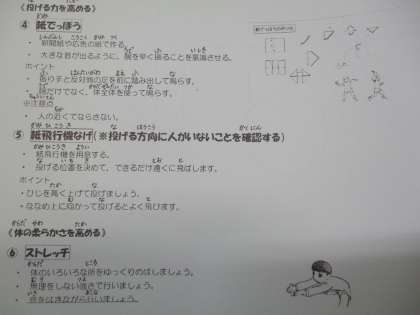 (投げる力を高める)
④ 紙でっぽう
・新聞紙や広告の紙で作る。
・大きな音が出るように、腕を早く振ることを意識させる。
ポイント
・振り手と反対側の足を前に踏み出して鳴らす。
・腕だけでなく、体全体を使って鳴らす。
※注意点
・人の近くでならさない。
⑤ 紙飛行機なげ(※投げる方向に人がいないことを確認する)
・紙飛行機を用意する。
・投げる位置を決めて、できるだけ遠くに飛ばします。
ポイント
・ひじを高く上げて投げましょう。
・ななめ上に向かって投げるとよく飛びます。
(体の柔らかさを高める)
⑥ ストレッチ
・体のいろいろな所をゆっくりのばしましょう。
・無理をしない強さで行いましょう。
・息をはきながら行いましょう。